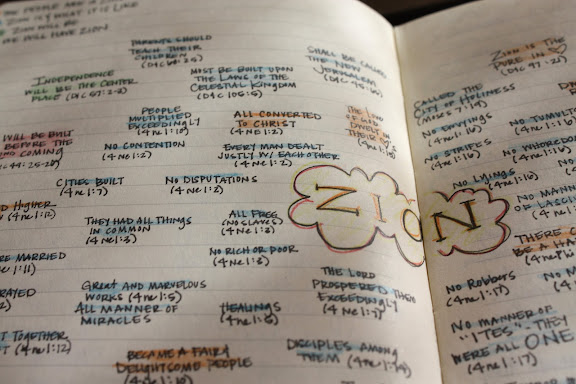 ZION IS WHAT IT IS LIKE
ZION WILL BE
WE WILL HAVE ZION
PARENTS SHOULD
TEACH THEIR
CHILDREN
INDEPENDENCE
WILL BE THE CENTER
PLACE
MUST BE BUILT UPON
THE LAWS OF THE
CELESTIAL KINGDOM
(D&C 105:5)
SHALL BE CALLED
THE NEW
JERUSALEM
(D&C 45:66)
PEOPLE
MULTIPLIED
EXCEEDINGLY
(4 NE 1:10)
ALL CONVERTED
TO CHRIST
(4 NE 1:2)
THE LORD
WILL BE BUILT
BEFORE THE
COMING
NO CONTENTION
(4 NE 1:2)
EVERY MAN DEALT
JUSTLY W/ EACH OTHER
(4 NE 1:2)
CITIES BUILT
(4 NE 1:7)
NO DISPUTATIONS
(4 NE 1:2)
THEY HAD ALL THINGS
IN COMMON
(4 NE 1:3)
ALL FREE
(NO SLAVES)
(4 NE 1:3)
NO RICH OR POOR
(4 NE 1:3)
MARRIED
1:11)
GREAT AND MARVELOUS
WORKS (4 NE 1:5)
ALL MANNER OF
MIRACLES
HEALINGS
(4 NE 1:5)
THE LORD
PROSPERED THEM
EXCEEDINGLY
(4 NE 1:7)
TOGETHER
(4 NE 1:12)
BECAME A FAIR &
DELIGHTSOME PEOPLE
(4 NE 1:10)
DISCIPLES AMONG
THEM (4 NE 1:14)
ZION
ZION IS THE
PURE IN ♡
(D&C 97:21)
CALLED THE
CITY OF HOLINESS
(MOSES 7:19)
NO ENVYINGS
(4 NE 1:16)
NO STRIFES
(4 NE 1:16)
NO TUMULTS
NO WHOREDOMS
NO LYINGS
(4 NE 1:16)
NO MANNER
OF LASCIV
THERE C
BE A HA
NO ROBBERS
(4 NE 1:17)
NO MANNER OF
"ITES" - THEY
WERE ALL ONE
(4 NE 1:17)